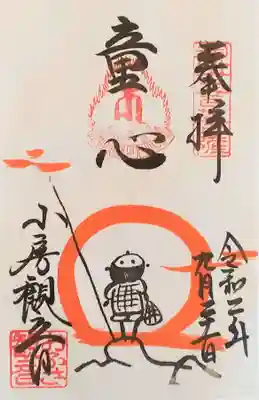 奉拝
童心
令和二年
九月二十一日
小房観音